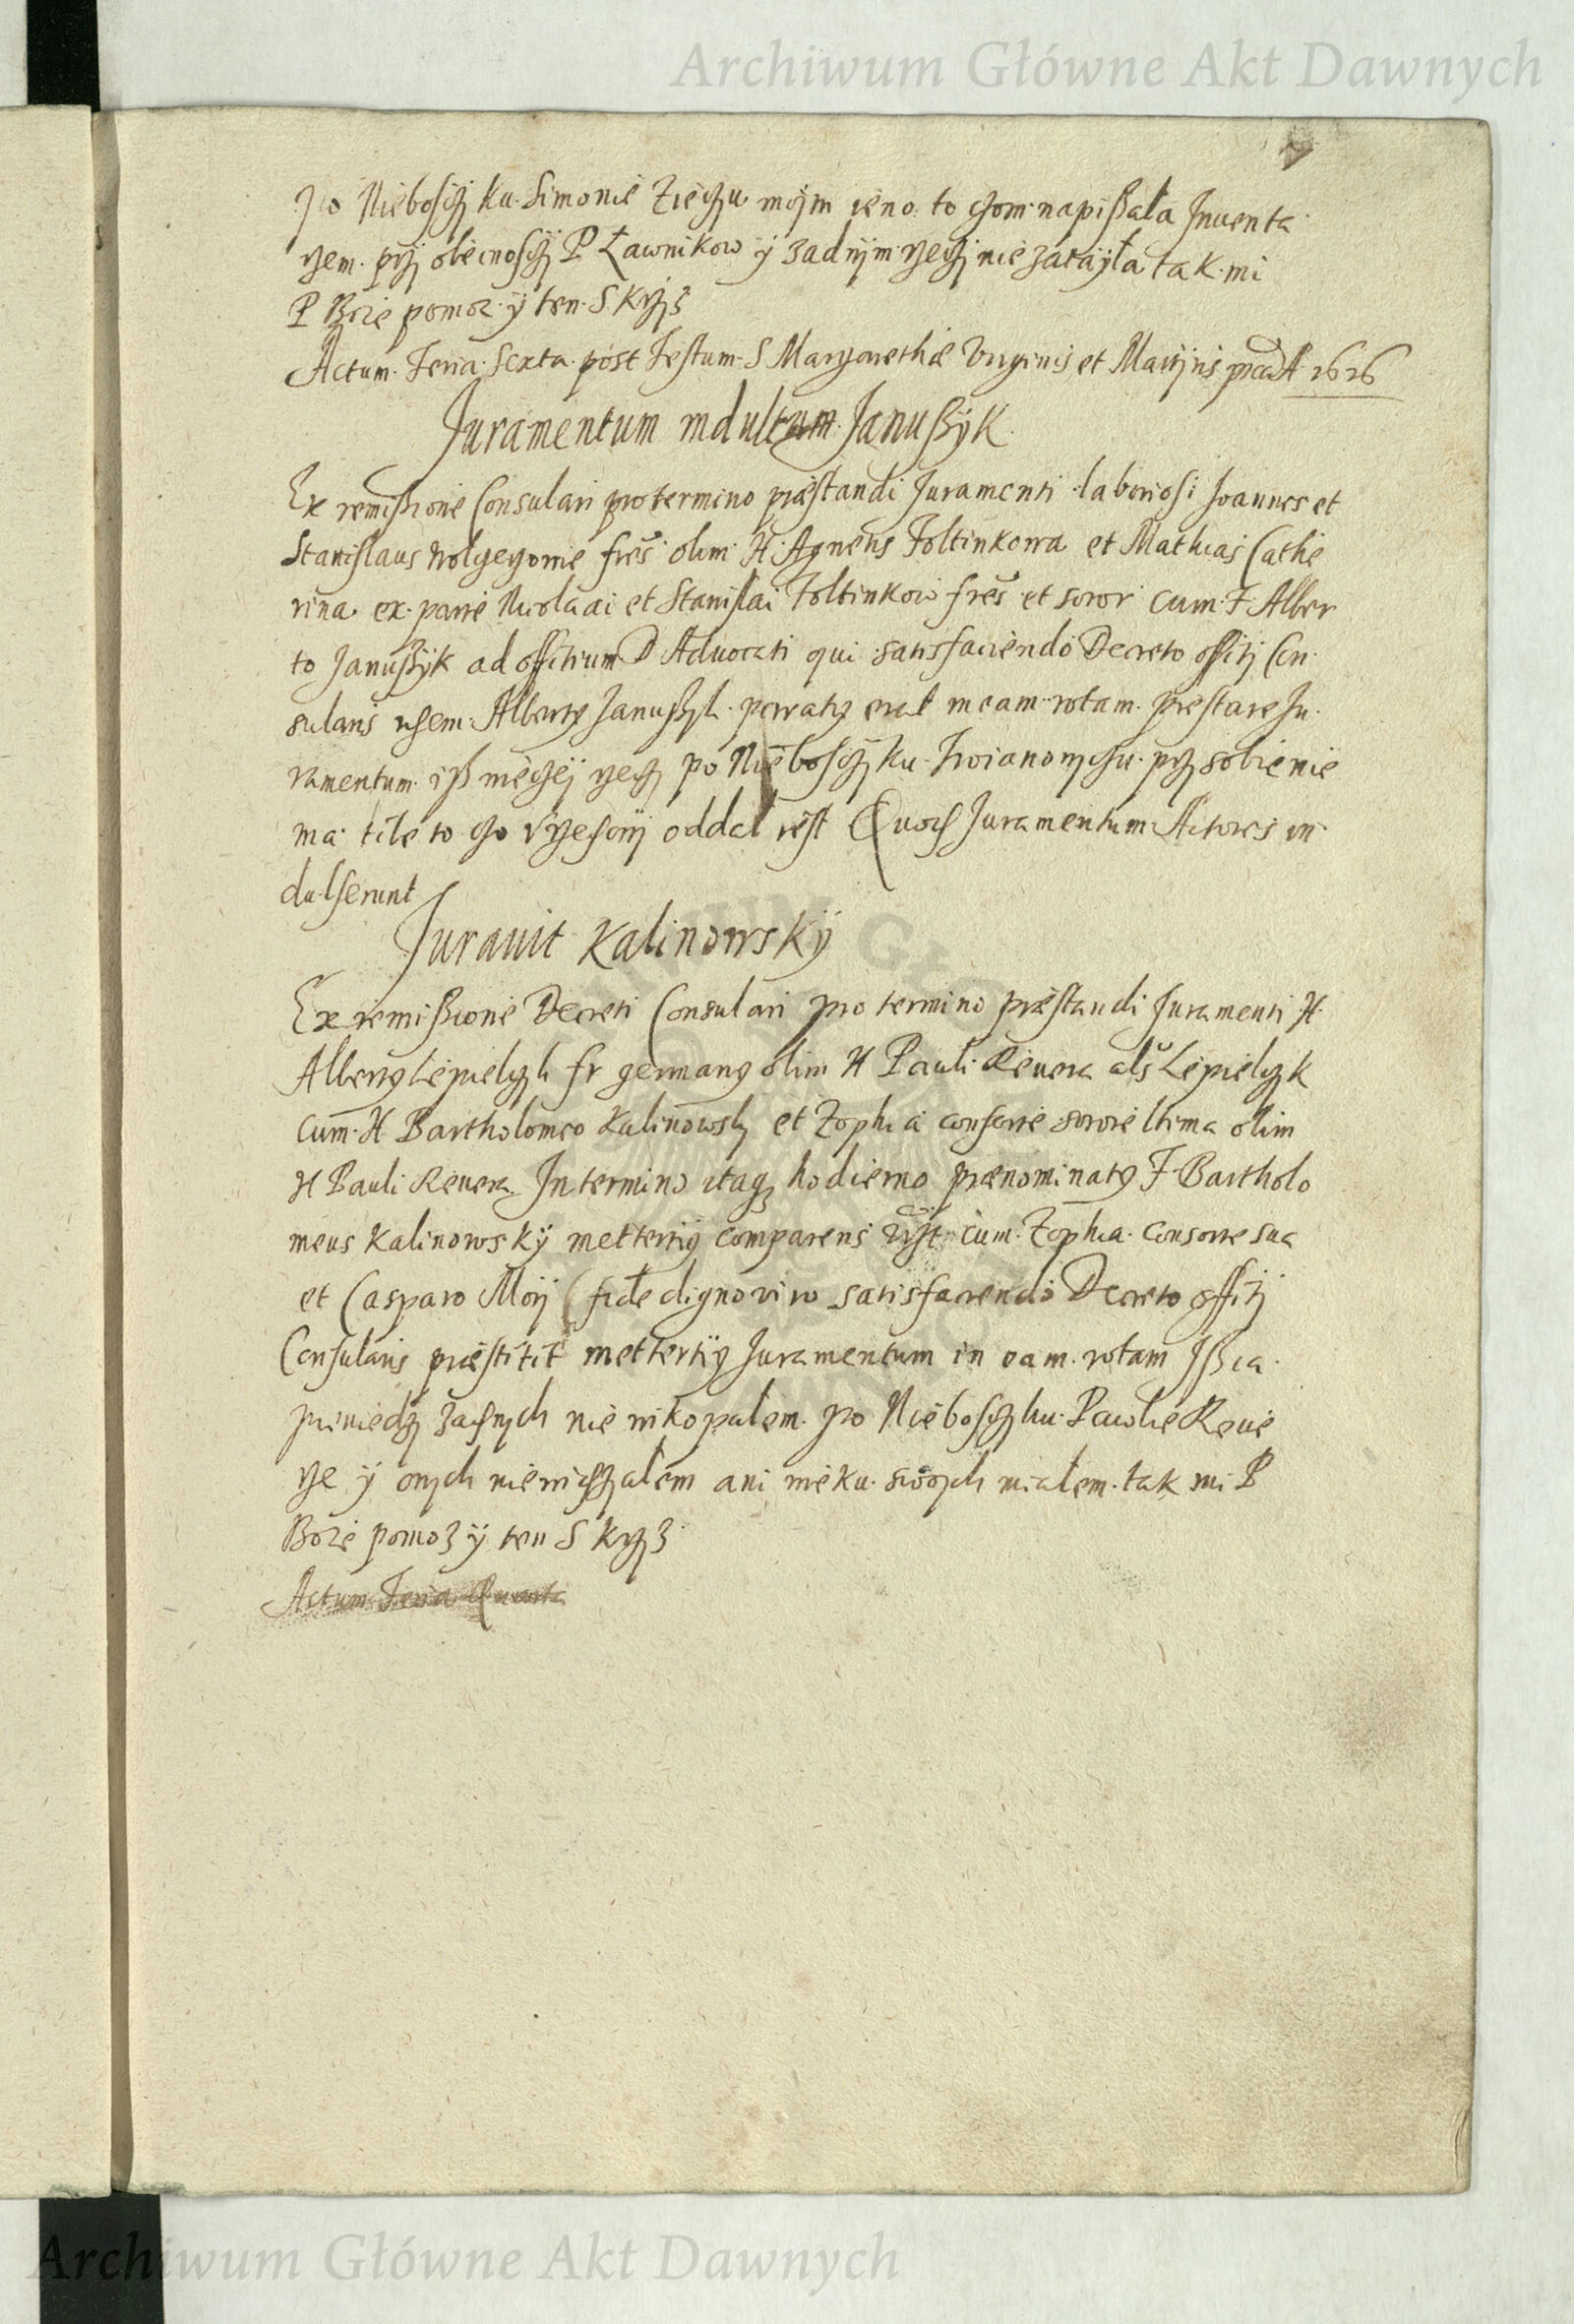 Archiwum Główne Akt Dawnych
po Niebosczyku Simonie Zieczu moim ieno to czom napißała Inventa
rzem przy obecnosczy P Ławnikow ÿ zadnÿm rzeczÿ nie zataÿła tak mi
P Boze pomoz ÿ ten S krzyz
Actum Feria Sexta post Festum S Margarethæ Virginis et Martÿris 1616
Juramentum indultum Janußÿk
Ex remißione Consulari pro termino præstandi Juramenti laboriosi Joannes et
Stanislaus fres olim H Agnetis Foltinkowa et Mathias Cathe
rina ex parte Nicolaai et Stanislai Foltinkow fres et soror cum F Alber
to Janußÿk ad offitium D Advocati qui satisfaciendo Decreto offitÿ Con
sularis Albertus Janußyk paratus erat in eam rotam præstare Ju
ramentum iß wieczeÿ rzeczy po Niebosczyku przy sobie nie
ma tile to czo oddal iest Quod Juramentum Actores in
dulserunt
Juravit Kalinowskÿ
Ex remißione Decreti Consulari pro termino præstandi Juramenti H
Albertus Lepielczyk fr germanus olim H Pauli Revera als Lepielczyk
cum H Bartholomeo Kalinowsky et Zophia consorte sorore olim
H Pauli Revera In termino itaq hodierno prænominatus F Bartholo
meus Kalinowskÿ mettertius comparens cum Zophia consorte sua
et Casparo fide digno viro satisfaciendo Decreto offitÿ
Consularis præstitit mettertius Juramentum in eam rotam Ißia
pieniedzy zadnych nie wikopalem po Niebosczyku Pawle Reve
rze ÿ onych nie ani wieku swoych mialem tak mi P
Boze pomoz ÿ ten S krzyz
Actum Feria Quarta
Archiwum Główne Akt Dawnych